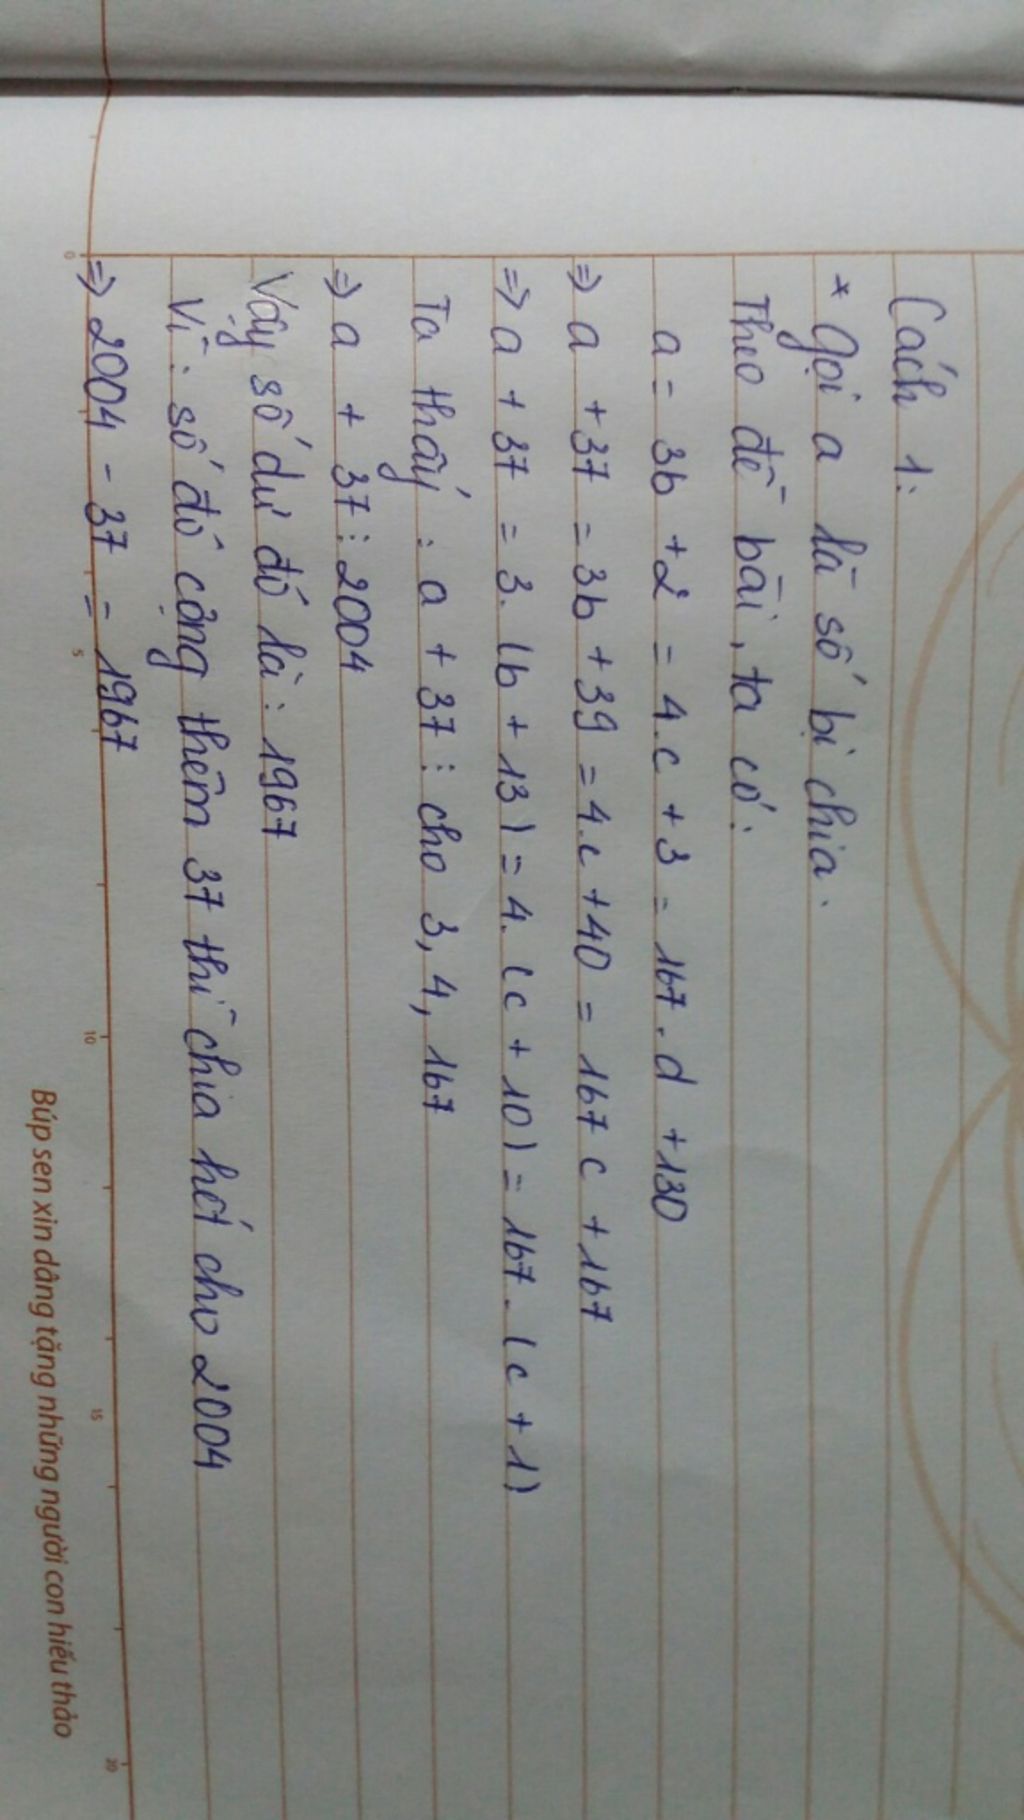 Cách 1:
* Gọi a là số bị chia.
Theo đề bài, ta có:
a = 3b + 2 = 4.c + 3 = 167.d + 130
=> a + 37 = 3b + 39 = 4.c + 40 = 167c + 167
=> a + 37 = 3.(b + 13) = 4.(c + 10) = 167.(c + 1)
Ta thấy: a + 37 ⋮ cho 3, 4, 167
=> a + 37 ⋮ 2004
Vậy số dư đó là: 1967
Vì: số đó cộng thêm 37 thì chia hết cho 2004
=> 2004 - 37 = 1967
0 5 10 15 20
Búp sen xin dâng tặng những người con hiếu thảo